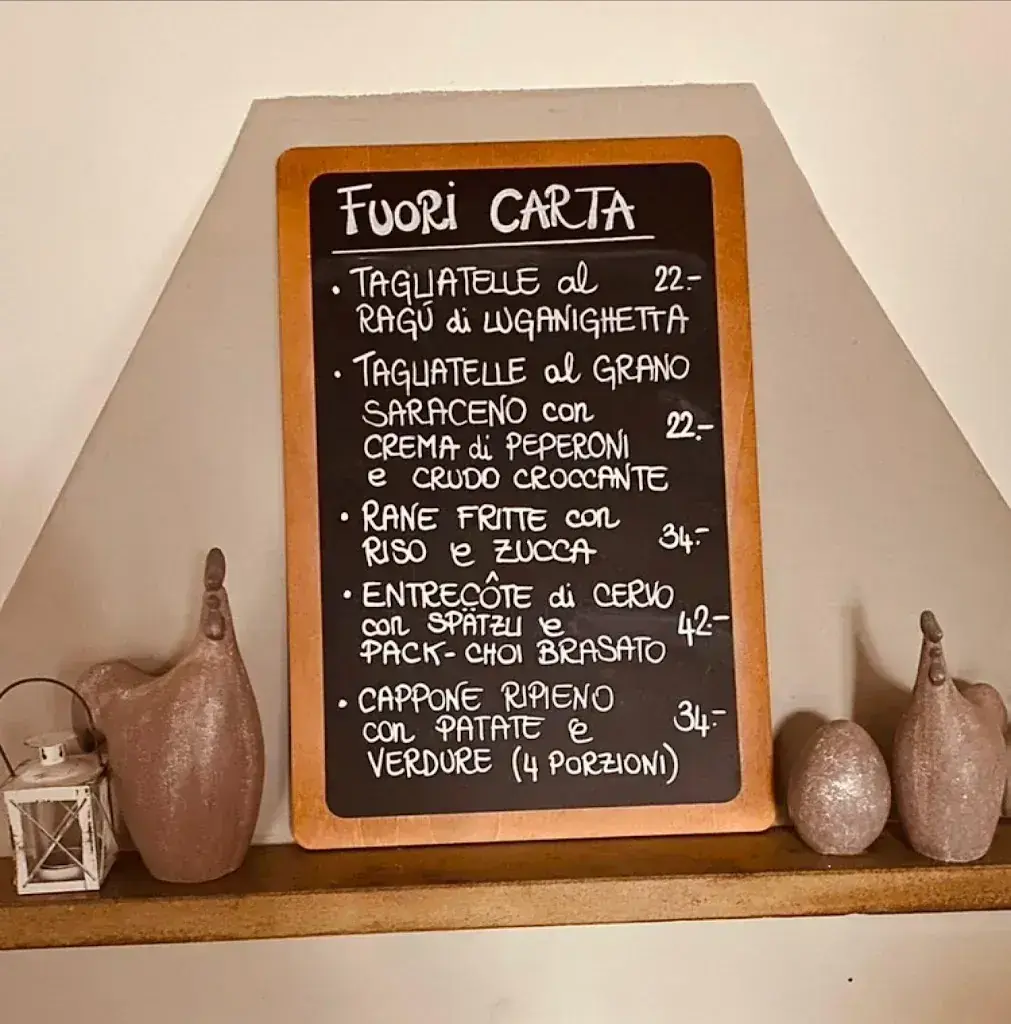 FUORi CARTA
• TAGLIATELLE al 22.-
RAGÚ di LUGANIGHETTA
• TAGLIATELLE al GRANO
SARACENO con
CREMA di PEPERONI 22.-
e CRUDO CROCCANTE
• RANE FRITTE con
RISO e ZUCCA 34.-
• ENTRECÔTE di CERVO
con SPÄTZLI e 42.-
PACK-CHOI BRASATO
• CAPPONE RIPIENO
con PATATE e 34.-
VERDURE (4 PORZIONI)